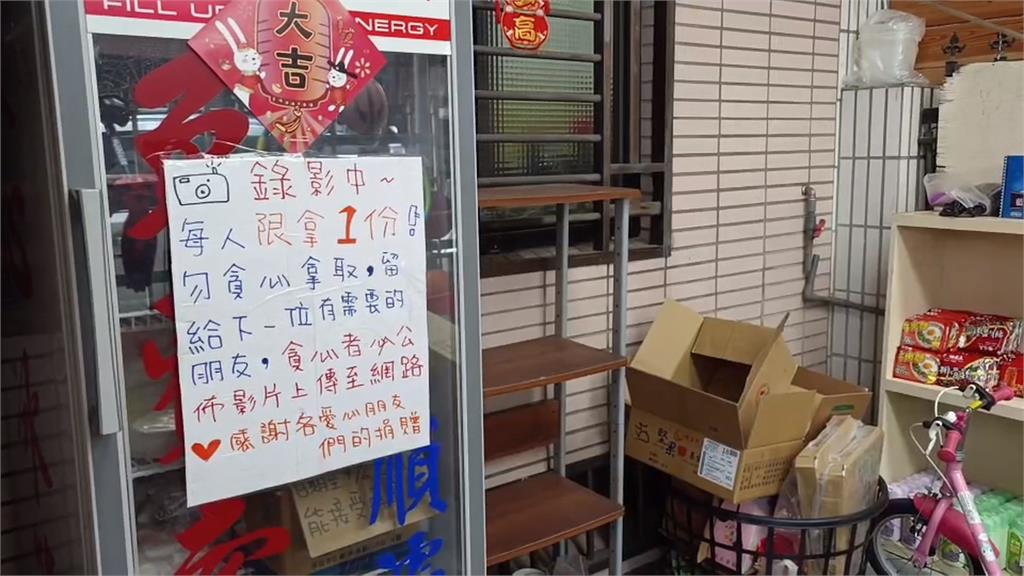 FILL UP
ENERGY
大
吉
高
錄影中~
每人限拿1份
勿貪心拿取,留
給下一位有需要的
朋友,貪心者必公
佈影片上傳至網路
感謝各愛心朋友
們的捐贈
能接受
順
堅果